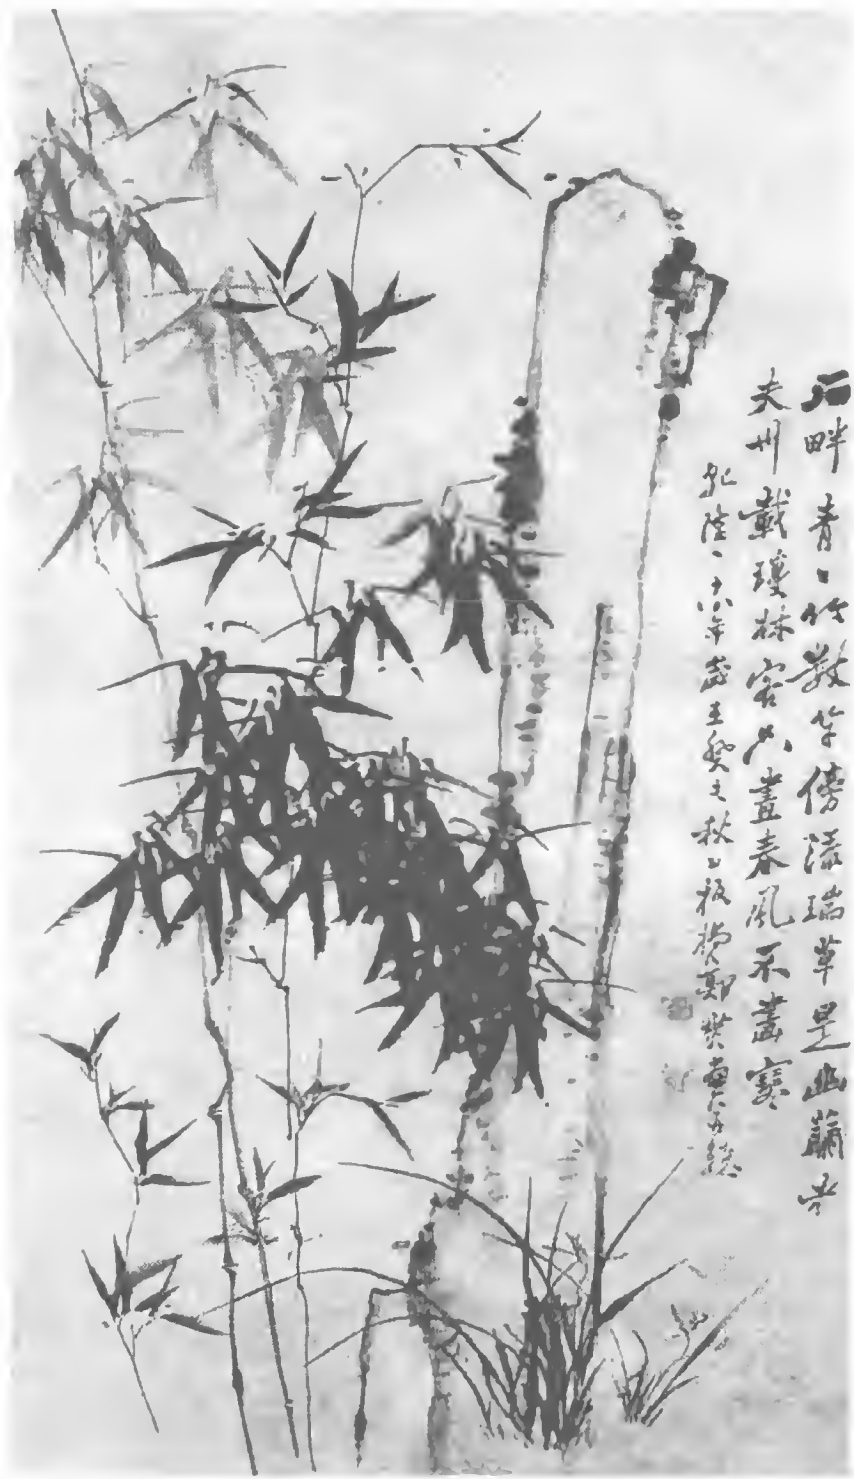 石畔青青竹數竿傍添瑞草是幽蘭老
夫卅載瓊林客只畫春風不畫寒
乾隆二十八年歲在癸未秋板橋鄭燮畫